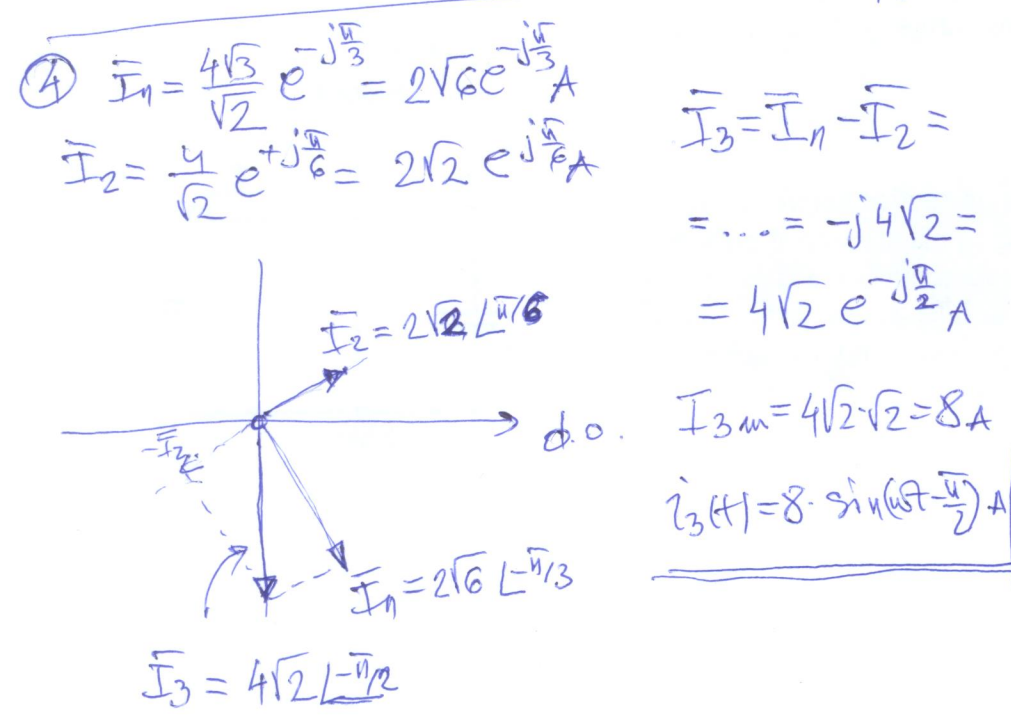 ④ Ī₁ = 4√3/√2 e^(-jπ/3) = 2√6 e^(-jπ/3) A
Ī₂ = 4/√2 e^(+jπ/6) = 2√2 e^(jπ/6) A
Ī₂ = 2√2 ∠π/6
d.o.
-Ī₂
Ī₁ = 2√6 ∠-π/3
Ī₃ = 4√2 ∠-π/2
Ī₃ = Ī₁ - Ī₂ =
= ... = -j4√2 =
= 4√2 e^(-jπ/2) A
I₃m = 4√2·√2 = 8 A
i₃(t) = 8· sin(ωt - π/2) A